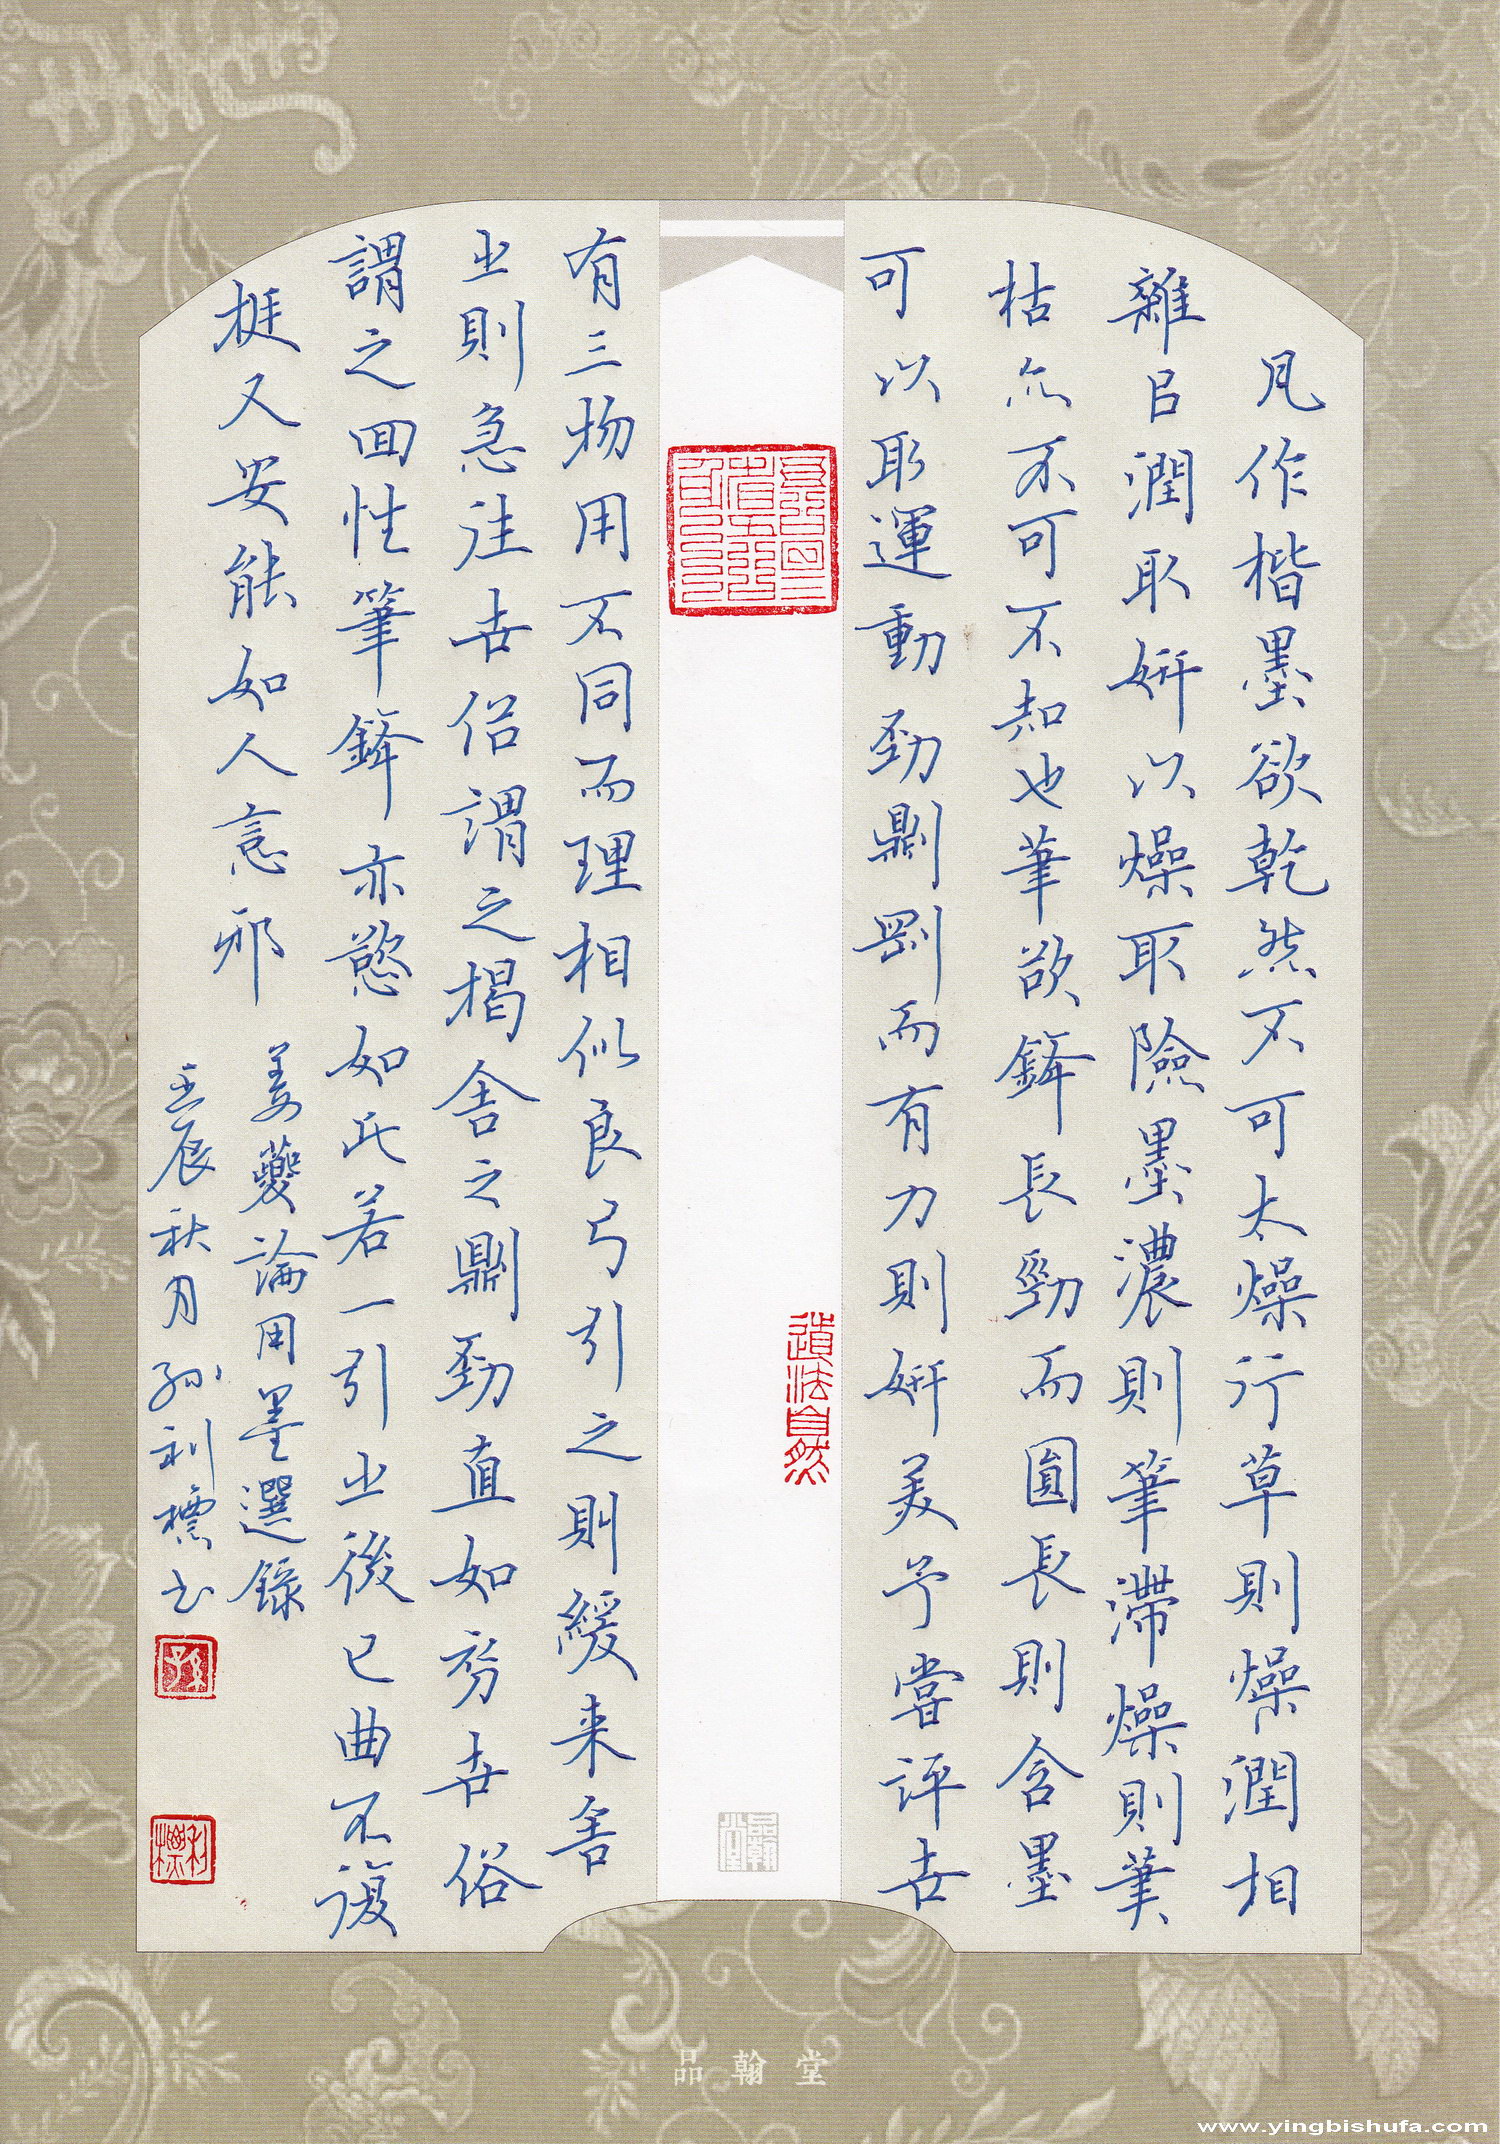 凡作楷墨欲乾然不可太燥行草則燥潤相
雜㠯潤取妍以燥取險墨濃則筆滯燥則筆
枯亦不可不知也筆欲鋒長勁而圓長則含墨
可以取運動勁則剛而有力則妍美予嘗評世
有三物用不同而理相似良弓引之則緩来舍
之則急往世俗謂之揭舍之則勁直如初世俗
謂之回性筆鋒亦慾如此若一引之後已曲不復
挺又安能如人意邪
姜夔論用墨選錄
壬辰秋月孫利標书
道法自然
孫
利標
品翰堂
品翰堂
www.yingbishufa.com